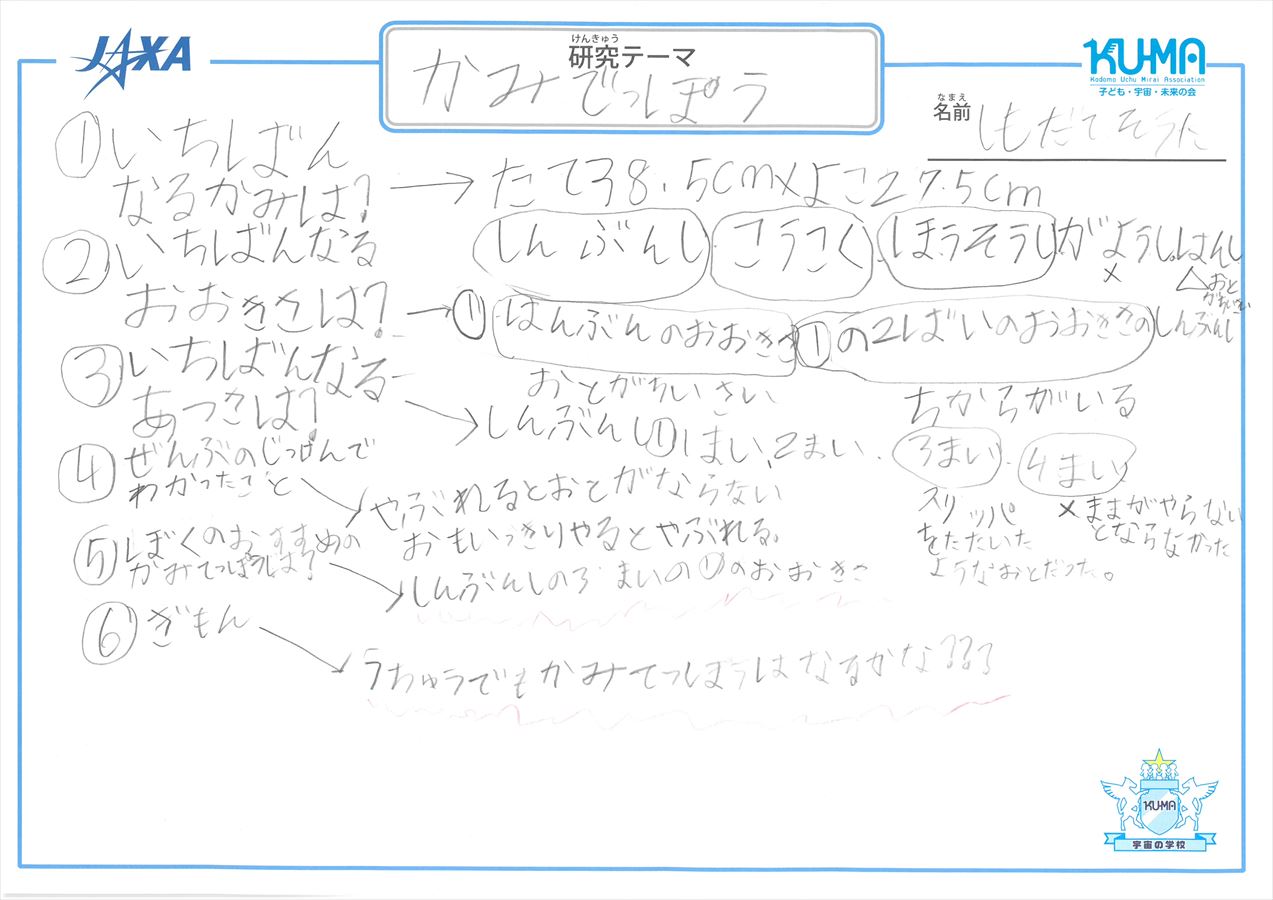 JAXA
けんきゅう
研究テーマ
かみでっぽう
KU-MA
Kodomo Uchu Mirai Association
子ども・宇宙・未来の会
なまえ
名前
しもだてそうた
①いちばん
なるかみは?
→たて38.5cm×よこ27.5cm
しんぶんし こうこく ほうそうし がようし はんし
× △おと
がちいさい
②いちばんなる
おおききは?
→① はんぶんのおおきき ①の2ばいのおおききのしんぶんし
おとがちいさい
ちからがいる
③いちばんなる
あつさは?
しんぶんし① 1まい、2まい、3まい、4まい
スリッパ
をたたいた
ようなおとだった。
×ままがやらない
とならなかった
④ぜんぶのじっけんで
わかったこと
やぶれるとおとがならない
おもいっきりやるとやぶれる。
⑤ぼくのおすすめの
かみてっぽうは?
しんぶんしの3まいの①のおおきさ
⑥ぎもん
うちゅうでもかみてっぽうはなるかな???
KU-MA
宇宙の学校